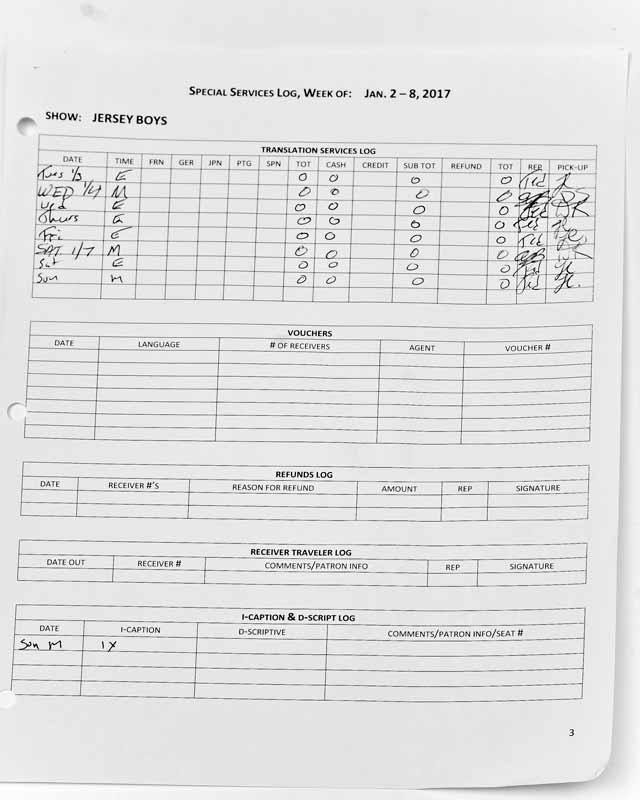 SPECIAL SERVICES LOG, WEEK OF: JAN. 2 – 8, 2017
SHOW: JERSEY BOYS
TRANSLATION SERVICES LOG
DATE TIME FRN GER JPN PTG SPN TOT CASH CREDIT SUB TOT REFUND TOT REP PICK-UP
Tues 1/3 E 0 0 0 0 Ted
WED 1/4 M 0 0 0 0
Wed E 0 0 0 0 Ted
Thurs E 0 0 0 0 Ted
Fri E 0 0 0 0 Ted
SAT 1/7 M 0 0 0 0
Sat E 0 0 0 0
Sun M 0 0 0 0 Ted
VOUCHERS
DATE LANGUAGE # OF RECEIVERS AGENT VOUCHER #
REFUNDS LOG
DATE RECEIVER #'S REASON FOR REFUND AMOUNT REP SIGNATURE
RECEIVER TRAVELER LOG
DATE OUT RECEIVER # COMMENTS/PATRON INFO REP SIGNATURE
I-CAPTION & D-SCRIPT LOG
DATE I-CAPTION D-SCRIPTIVE COMMENTS/PATRON INFO/SEAT #
Sun M 1X
3